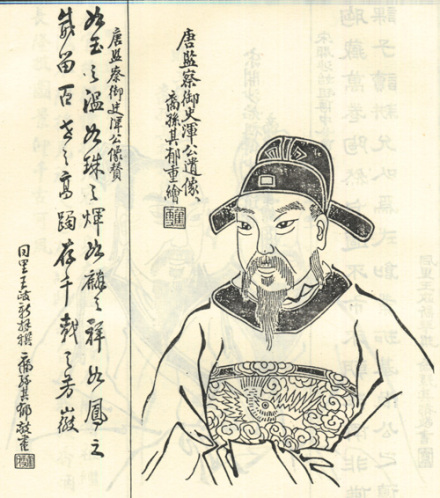 唐監察御史渾公遺像
裔孫其郁重繪
唐監察御史渾公像贊
如玉之溫如珠之煇如麟之祥如鳳之
儀留百世之高躅存千載之芳徽
同里王 撰 裔孫其郁敬書